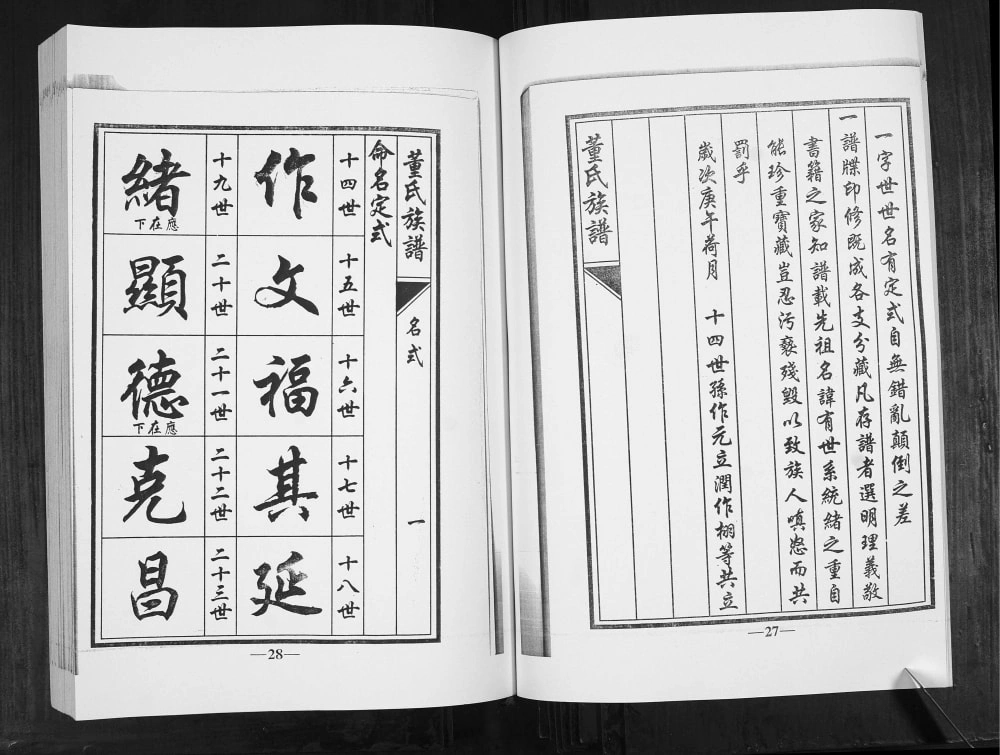 一字世世名有定式自無錯亂顛倒之差
一譜牒印修既成各支分藏凡存譜者選明理義敬
書籍之家知譜載先祖名諱有世系統緒之重自
能珍重寶藏豈忍污褻殘毀以致族人嗔怒而共
罰乎
歲次庚午荷月 十四世孫作元立潤作栩等共立
董氏族譜
—27—
董氏族譜 名式 一
命名定式
十四世 十五世 十六世 十七世 十八世
作 文 福 其 延
十九世 二十世 二十一世 二十二世 二十三世
緒 顯 德 克 昌
下在應
下在應
—28—